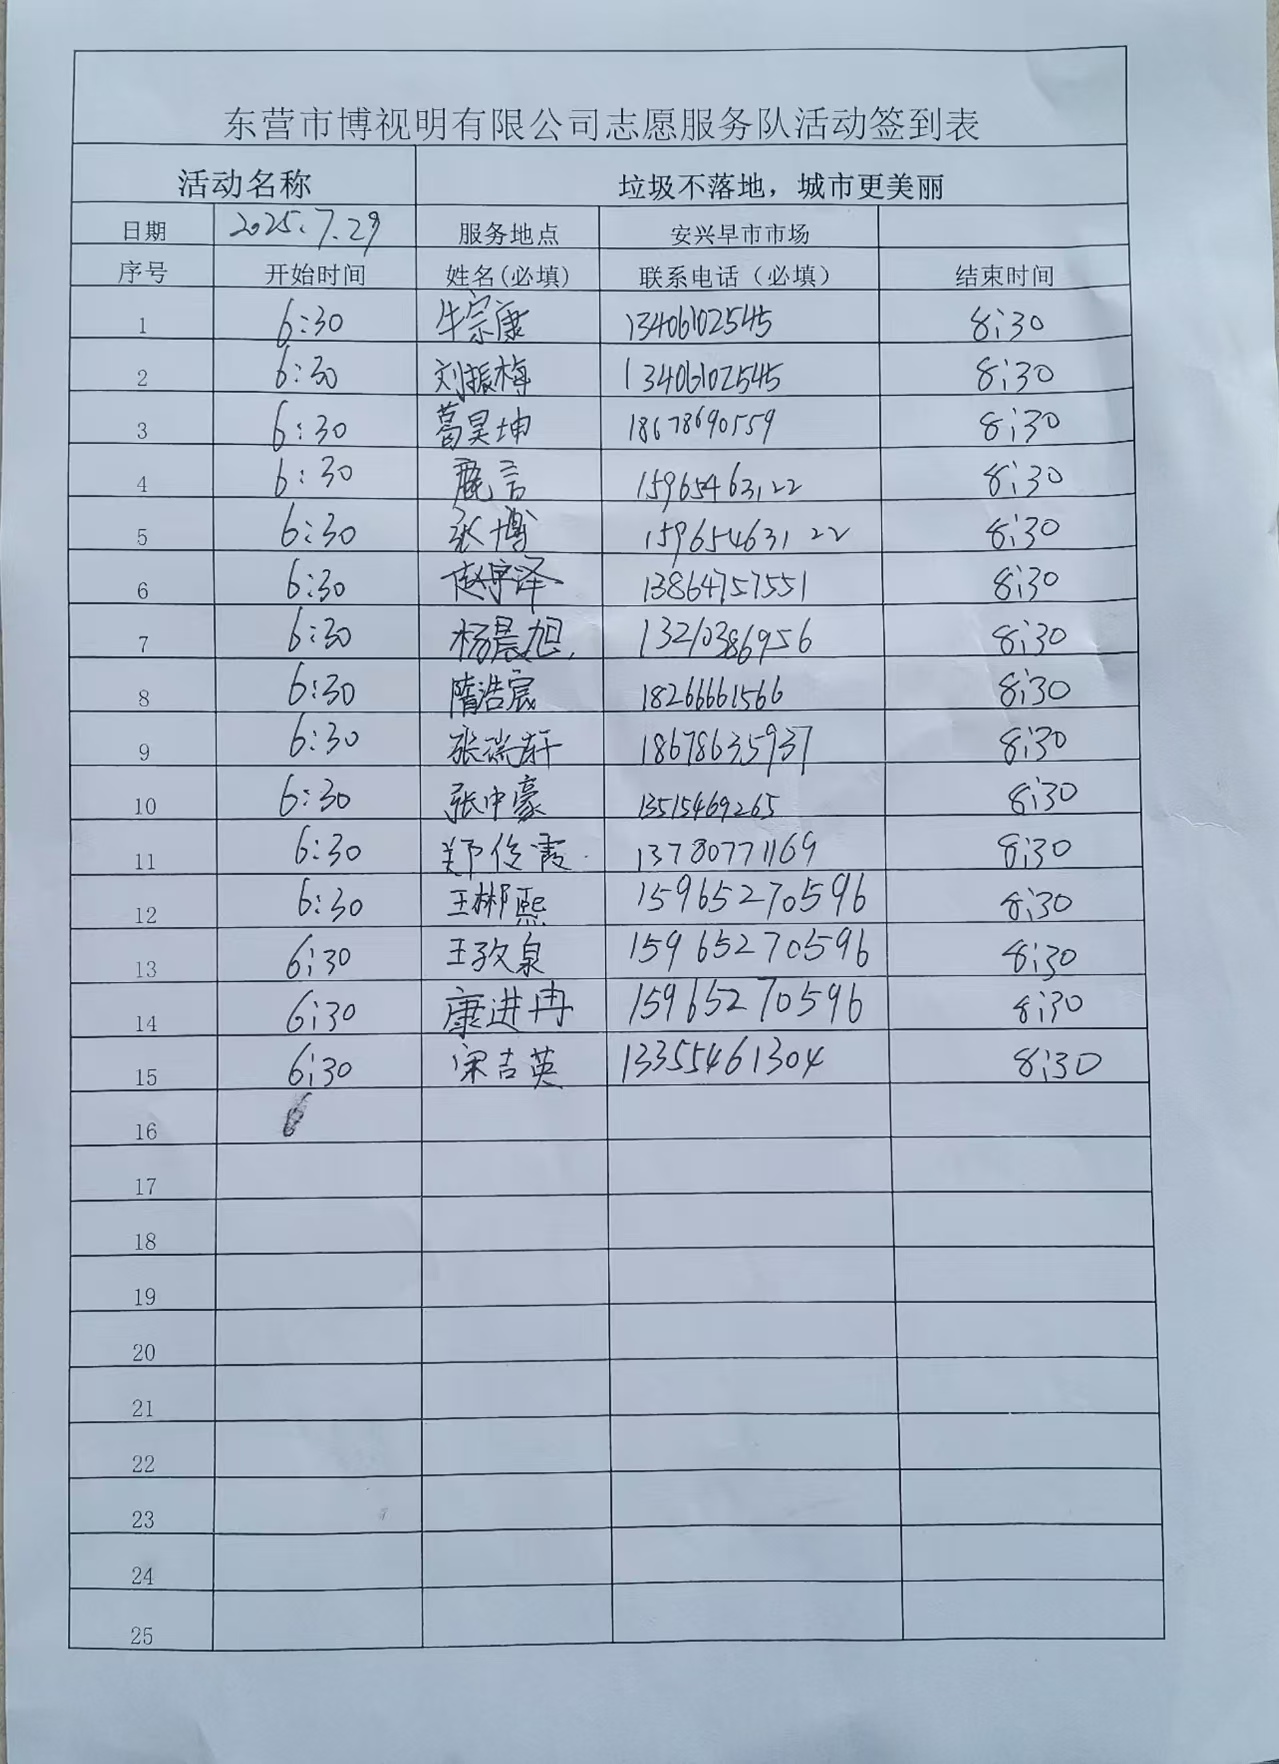 东营市博视明有限公司志愿服务队活动签到表
活动名称 垃圾不落地，城市更美丽
日期 2025.7.29 服务地点 安兴早市市场
序号 开始时间 姓名(必填) 联系电话（必填） 结束时间
1 6:30 牛宗康 13406102545 8:30
2 6:30 刘振梅 13406102545 8:30
3 6:30 葛昊坤 18678690559 8:30
4 6:30 鹿言 15965463122 8:30
5 6:30 张博 15965463122 8:30
6 6:30 赵宇泽 13864757551 8:30
7 6:30 杨晨旭 13210386956 8:30
8 6:30 隋浩宸 18266661566 8:30
9 6:30 张瑞轩 18678635937 8:30
10 6:30 张中豪 13515469265 8:30
11 6:30 郑俊霞 13780771169 8:30
12 6:30 王彬熙 15965270596 8:30
13 6:30 王孜泉 15965270596 8:30
14 6:30 康进冉 15965270596 8:30
15 6:30 宋吉英 13355461304 8:30
16
17
18
19
20
21
22
23
24
25